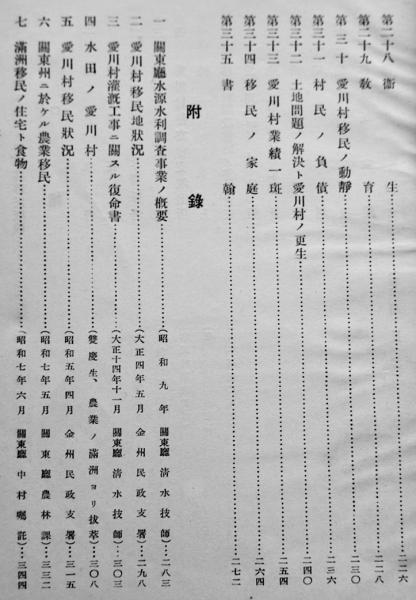 第二十八 衞生……二一六
第二十九 敎育……二二八
第三十 愛川村移民ノ動靜……二三六
第三十一 村民ノ負債……二四〇
第三十二 土地問題ノ解決ト愛川村ノ更生
第三十三 愛川村業績一斑……二五四
第三十四 移民ノ家庭……二六四
第三十五 書翰……二七二
附錄
一 關東廳水源水利調查事業ノ槪要……(昭和九年 關東廳淸水技師)…二八三
二 愛川村移民地狀況……(大正四年五月 金州民政支署)…二九八
三 愛川村灌漑工事ニ關スル復命書……(大正十四年十一月 關東廳淸水技師)…三〇三
四 水田ノ愛川村……(雙慶生、農業ノ滿洲ヨリ拔萃)…三〇八
五 愛川村移民狀況……(昭和五年四月 金州民政支署)…三一五
六 關東州ニ於ケル農業移民……(昭和七年五月 關東廳農林課)…三三二
七 滿洲移民ノ住宅ト食物……(昭和七年六月 關東廳中村囑託)…三四四